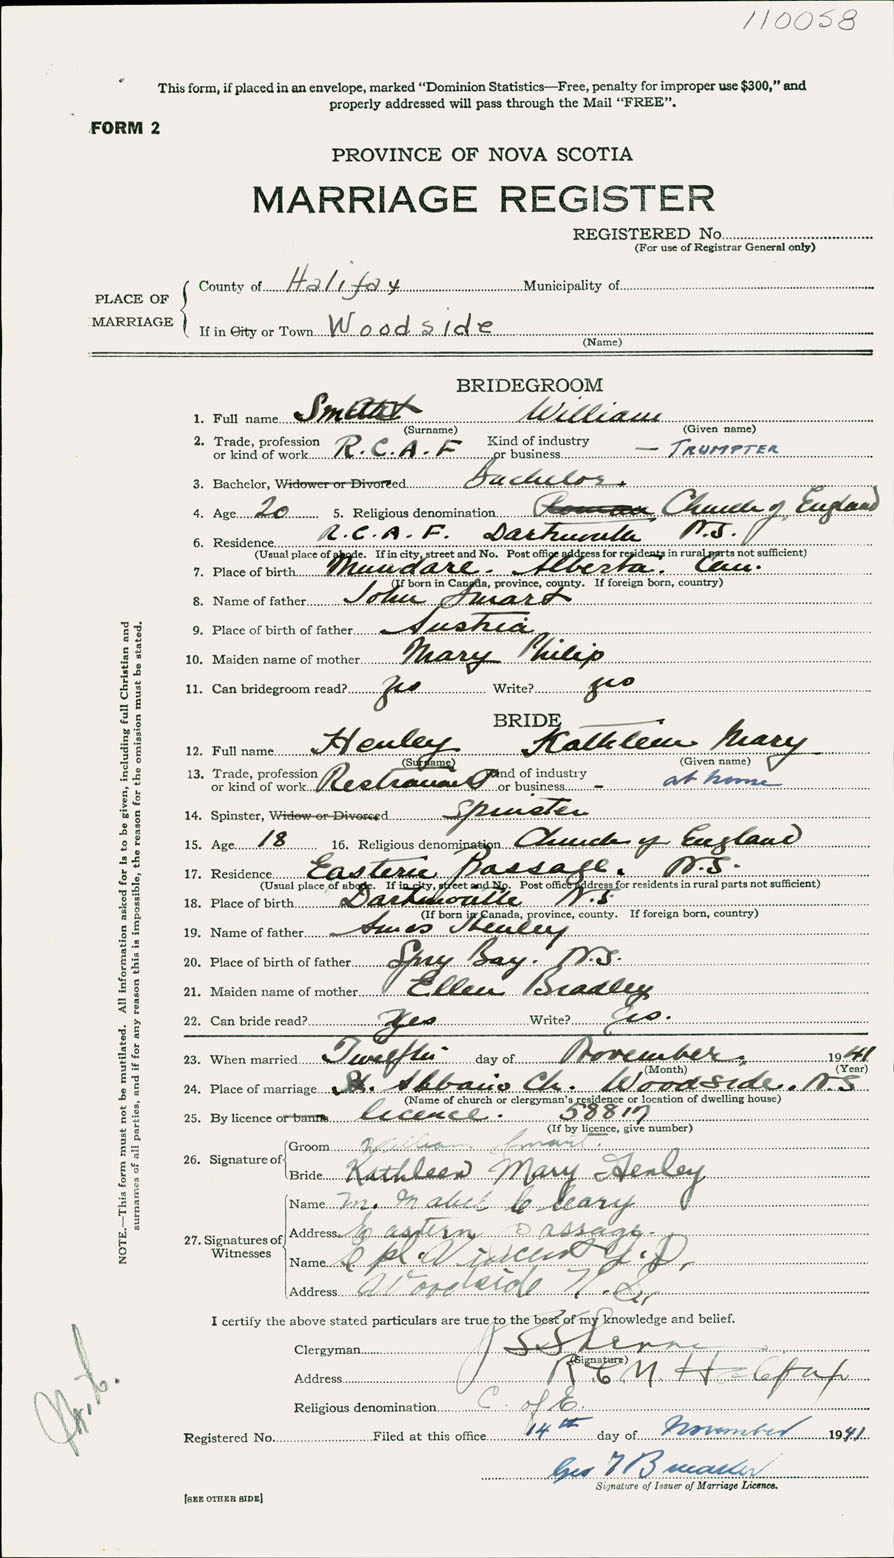 110058
This form, if placed in an envelope, marked "Dominion Statistics—Free, penalty for improper use $300," and
properly addressed will pass through the Mail "FREE".
FORM 2
PROVINCE OF NOVA SCOTIA
MARRIAGE REGISTER
REGISTERED No.
(For use of Registrar General only)
PLACE OF MARRIAGE
County of Halifax Municipality of
If in City or Town Woodside
(Name)
BRIDEGROOM
1. Full name William
(Surname) (Given name)
2. Trade, profession or kind of work R.C.A.F Kind of industry or business — TRUMPTER
3. Bachelor, Widower or Divorced Bachelor.
4. Age 20 5. Religious denomination Roman Church of England
6. Residence R.C.A.F. Dartmouth N.S.
(Usual place of abode. If in city, street and No. Post office address for residents in rural parts not sufficient)
7. Place of birth Mundare. Alberta. Can.
(If born in Canada, province, county. If foreign born, country)
8. Name of father John Smart
9. Place of birth of father Austria
10. Maiden name of mother Mary Philip
11. Can bridegroom read? yes Write? yes
BRIDE
12. Full name Henley Kathleen Mary
(Surname) (Given name)
13. Trade, profession or kind of work Kind of industry or business - at home
14. Spinster, Widow or Divorced Spinster
15. Age 18 16. Religious denomination Church of England
17. Residence Eastern Passage. N.S.
(Usual place of abode. If in city, street and No. Post office address for residents in rural parts not sufficient)
18. Place of birth Dartmouth N.S
(If born in Canada, province, county. If foreign born, country)
19. Name of father Henley
20. Place of birth of father Spry Bay. N.S.
21. Maiden name of mother Ellen Bradley
22. Can bride read? Yes Write? Yes.
23. When married Twelfth day of November. 1941
(Month) (Year)
24. Place of marriage St. Ch. Woodside. N.S
(Name of church or clergyman's residence or location of dwelling house)
25. By licence or banns licence. 58817
(If by licence, give number)
26. Signature of
Groom William Smart.
Bride Kathleen Mary Henley
27. Signatures of Witnesses
Name M. Mabel Cleary
Address Eastern Passage.
Name Cpl. Vincent
Address Woodside N.S.
I certify the above stated particulars are true to the best of my knowledge and belief.
Clergyman
(Signature)
Address Halifax
Religious denomination C. of E.
Registered No. Filed at this office 14th day of November 1941
Geo
Signature of Issuer of Marriage Licence.
[SEE OTHER SIDE]
NOTE.—This form must not be mutilated. All information asked for is to be given, including full Christian and
surnames of all parties, and if for any reason this is impossible, the reason for the omission must be stated.